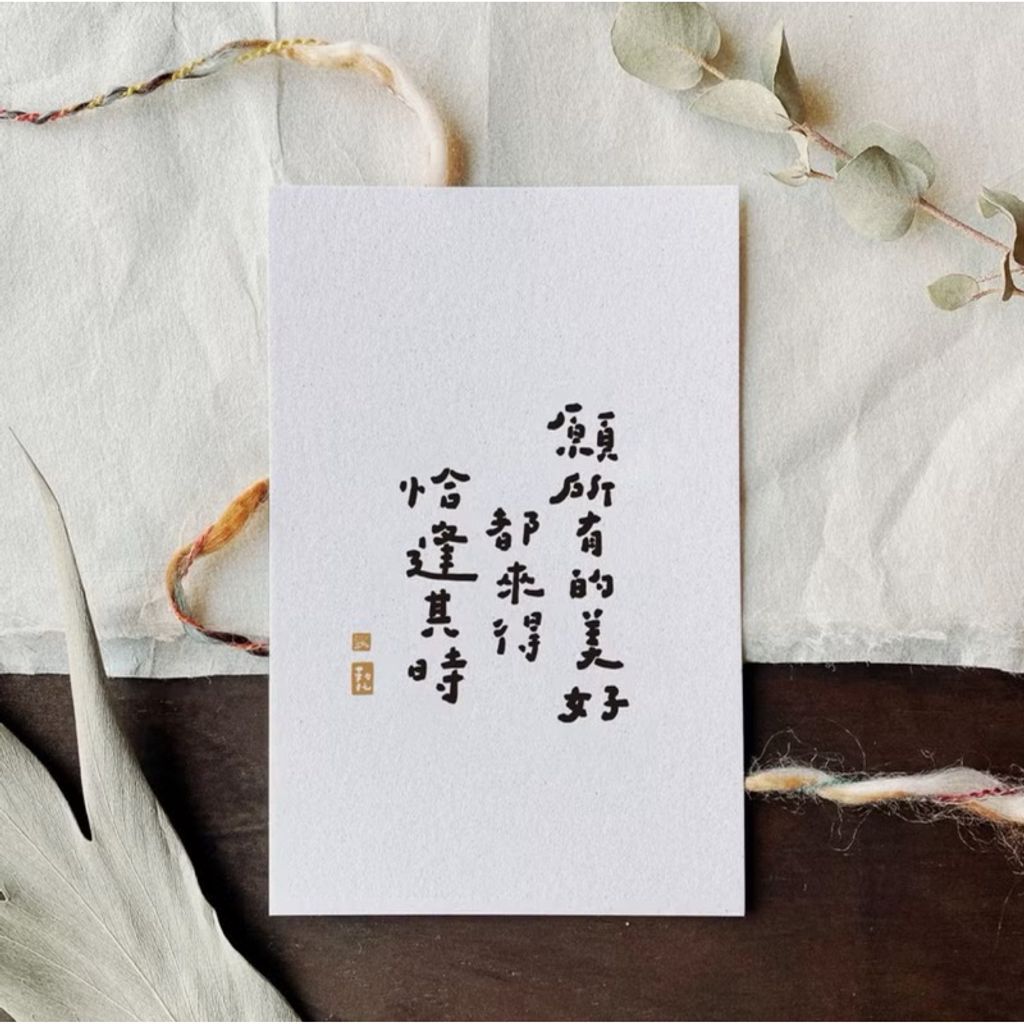 願所有的美好
都來得
恰逢其時